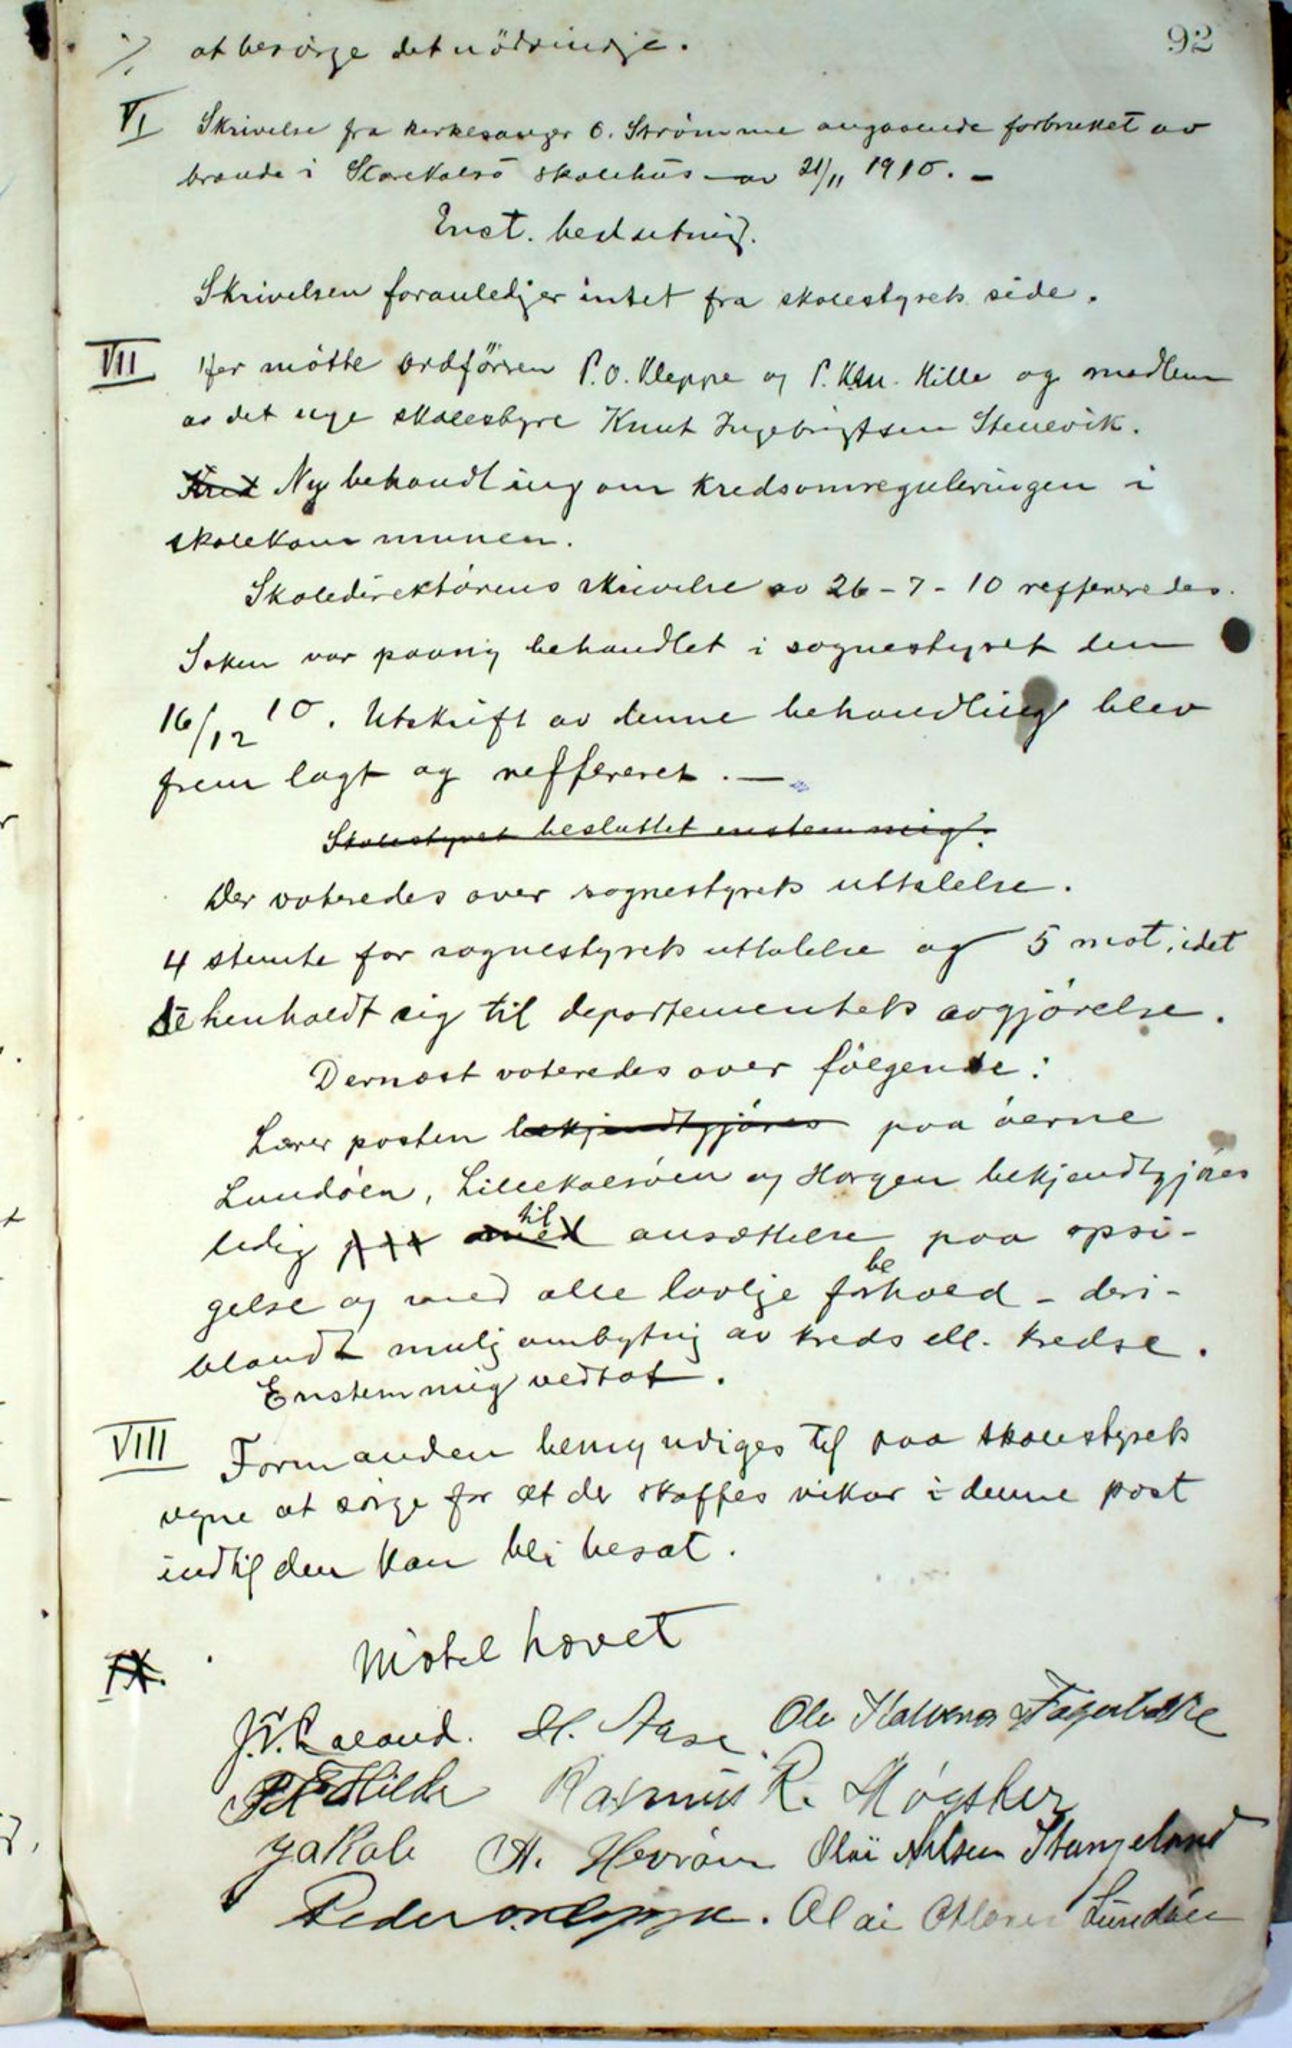 92
at besörge det nödvindge.
VI Skrivelse fra kirkesanger O. Strømme angaaende forbruket av
brande i Storekalsö skolehus av 21/11 1910. –
Enst. beslutning.
Skrivelsen foranledjer intet fra skolestyrets side.
VII Her mötte ordförren P.O. Kleppe og P. Kn. Hille og medlem
av det nye skolestyre Knut Ingebrigtsen Stenevik.
Kred Ny behandling om kredsomreguleringen i
skolekommunen.
Skoledirektörens skrivelse av 26-7-10 reffereredes.
Saken var paany behandlet i sognestyret den
16/12 10. Utskrift av denne behandling blev
frem lagt og reffereret. —
Skolestyret besluttet enstemmig:
Der voteredes over sognestyrets uttalelse.
4 stemte for sognestyrets uttalelse og 5 mot, idet
de henholdt sig til departementets avgjörelse.
Dernæst voteredes over fölgende:
Lærer posten bekjendtgjöres paa öerne
Lundöen, Lillekalsöen og Horgen bekjendtgjöres
ledig med til ansættelse paa opsi-
gelse og med alle lovlje forbehold - deri-
blandt mulj ombytnig av kreds ell. kredse.
Enstemmig vedtat.
VIII Formanden bemyndiges til paa skolestyrets
vegne at sörge for at der skaffes vikar i denne post
indtil den kan bli besat.
IX. Mötet hævet
H. Aase Ole Fagerbakke
P. Hille Rasmus R. Møgster
Jakob A. Hevröen Olai Nilsen Stangeland
Peder O. Kleppe. Olai Lundöen